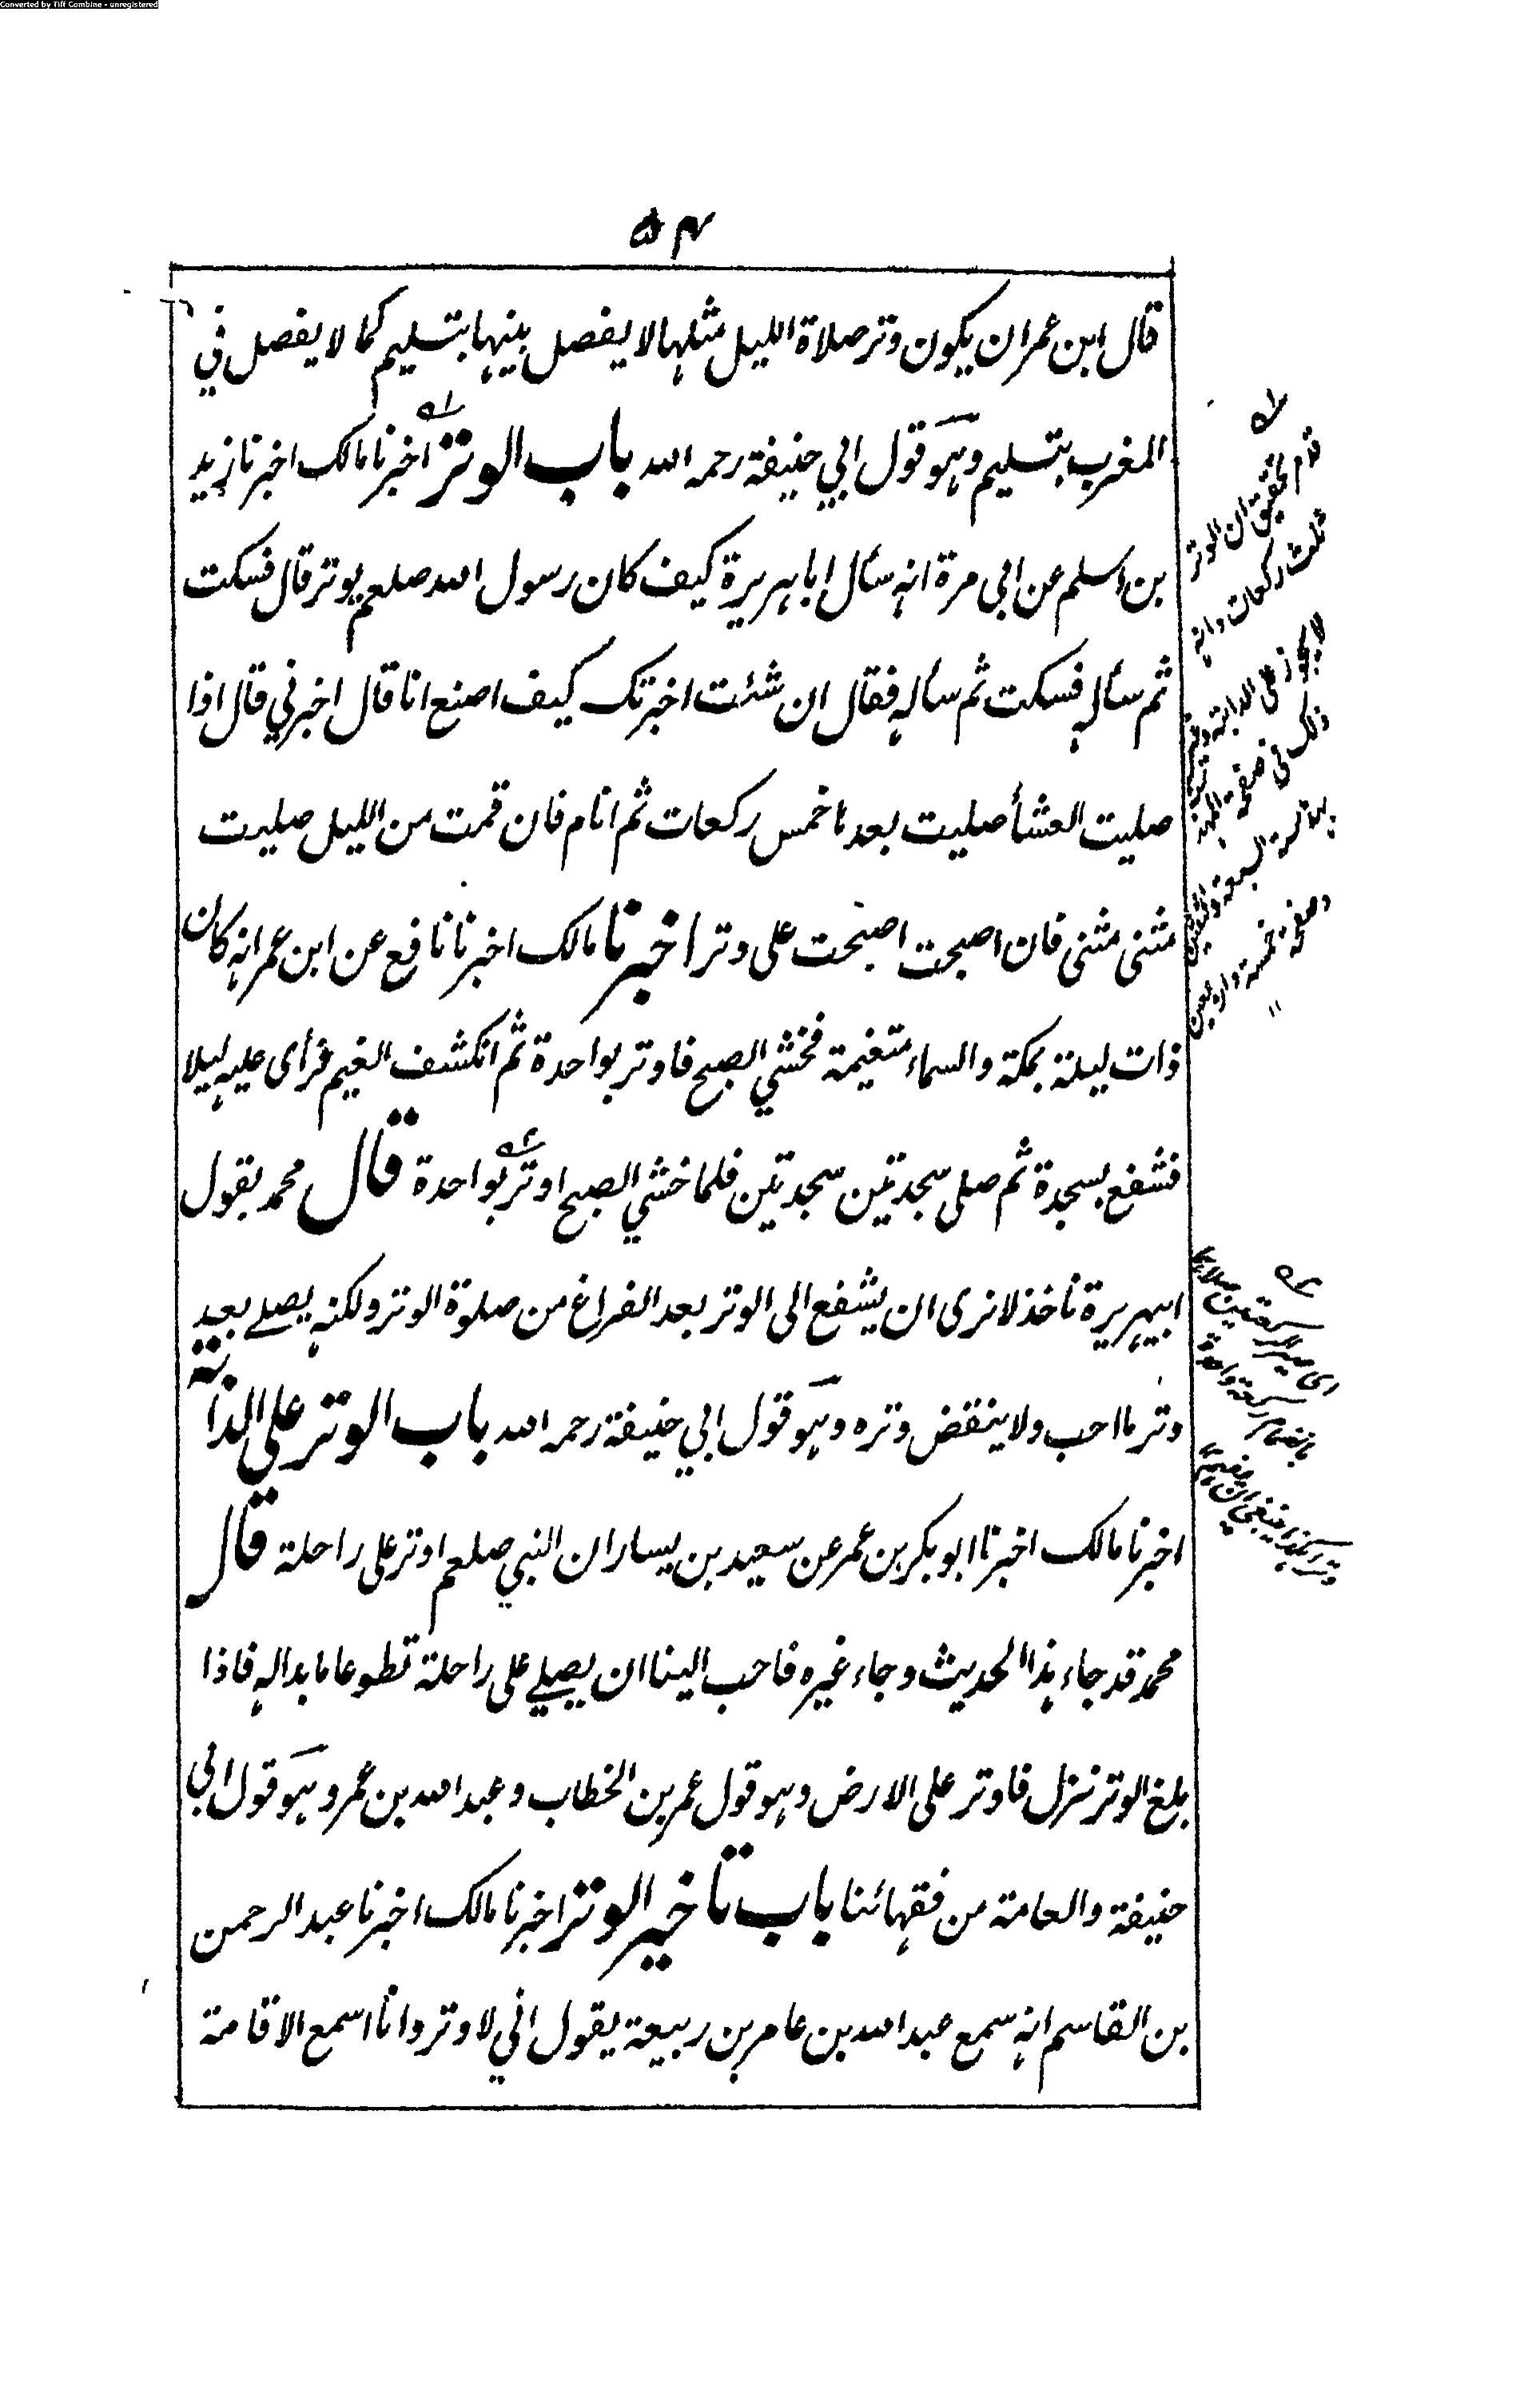 Converted by Tiff Combine - unregistered
۵۴
قال ابن عمر ان يكون وتر صلاة الليل مثلها لا يفصل بينها بتسليم كما لا يفصل في
المغرب بتسليم وهو قول ابي حنيفة رحمه الله باب الوتر اخبرنا مالك اخبرنا زيد
بن اسلم عن ابي مرة انه سأل اباهريرة كيف كان رسول الله صلعم يوتر قال فسكت
ثم سأله فسكت ثم سأله فقال ان شئت اخبرتك كيف اصنع انا قال اخبرني قال اذا
صليت العشأ صليت بعدها خمس ركعات ثم انام فان قمت من الليل صليت
مثنى مثنى فان اصبحت اصبحت على وتر اخبرنا مالك اخبرنا نافع عن ابن عمر انه كان
ذات ليلة بمكة والسماء متغيمة فخشي الصبح فاوتر بواحدة ثم انكشف الغيم فرأى عليه ليلا
فشفع بسجدة ثم صلى سجدتين سجدتين فلما خشي الصبح اوتر بواحدة قال محمد بقول
ابيهريرة ناخذ لا نرى ان يشفع الى الوتر بعد الفراغ من صلوة الوتر ولكنه يصلے بعد
وتر ما احب ولا ينقض وتره وهو قول ابي حنيفة رحمه الله باب الوتر على الدابة
اخبرنا مالك اخبرنا ابو بكر بن عمر عن سعيد بن يسار ان النبي صلعم اوتر على راحلة قال
محمد قد جاء هذا الحديث وجاء غيره فاحب الينا ان يصلے على راحلة تطوعا ما بدا له فاذا
بلغ الوتر نزل فاوتر على الارض وهو قول عمر بن الخطاب وعبد الله بن عمر وهو قول ابي
حنيفة والعامة من فقهائنا باب تاخير الوتر اخبرنا مالك اخبرنا عبد الرحمن
بن القاسم انه سمع عبد الله بن عامر بن ربيعة يقول اني لاوتر وانا اسمع الاقامة
ان الوتر
ثلث ركعات وانه
لا يجوز على الدابة